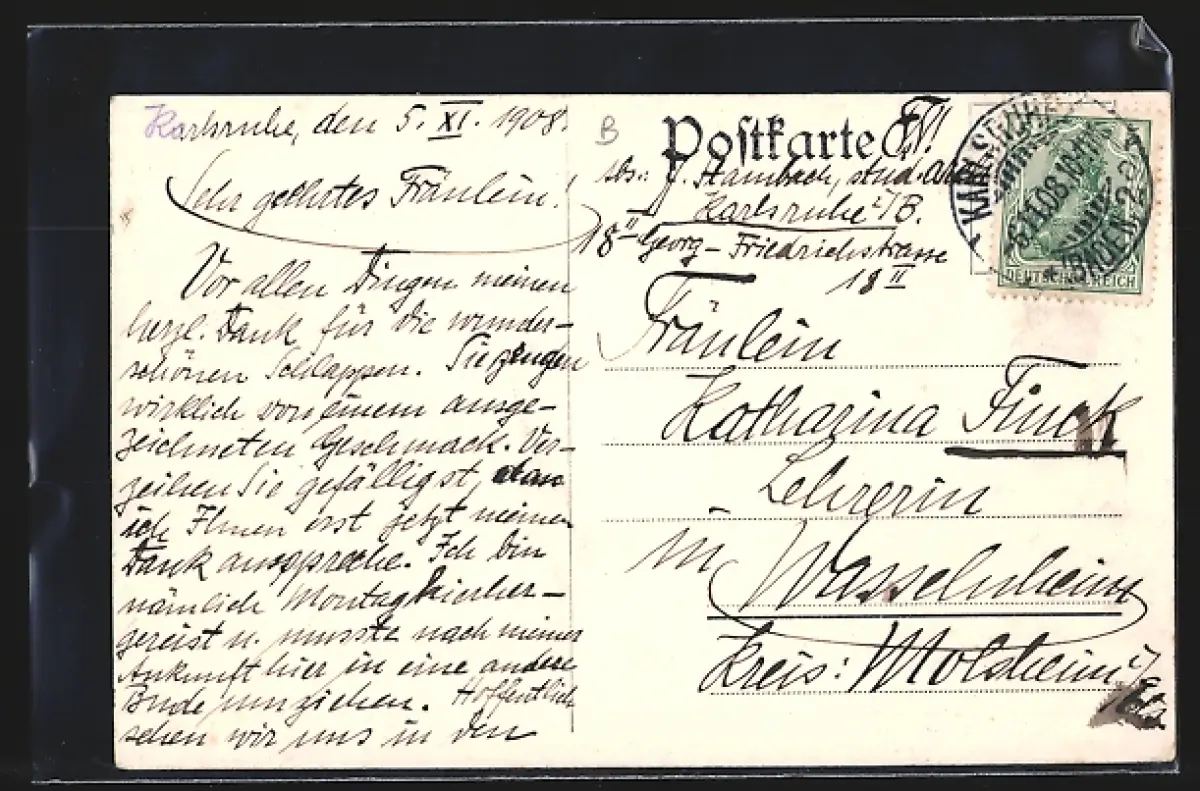 Karlsruhe, den 5. XI. 1908.
Sehr geehrtes Fräulein!
Vor allen Dingen meinen
herzl. Dank für die wunder-
schönen Schlappen. Sie zeugen
wirklich von einem ausge-
zeichneten Geschmack. Ver-
zeihen Sie gefälligst, dass
ich Ihnen erst jetzt meinen
Dank ausspreche. Ich bin
nämlich Montag hierher-
gereist u. musste nach meiner
Ankunft hier in eine andere
Bude umziehen. Hoffentlich
sehen wir uns in den
B
Postkarte
Abs.: J. Stambach, stud.
Karlsruhe i/B.
18 II Georg-Friedrichstrasse
18 II
Fräulein
Katharina Finck
Lehrerin
in Wasselnheim
Kreis: Molsheim i/Els.
KARLSRUHE
(BADEN) 2
DEUTSCHES REICH